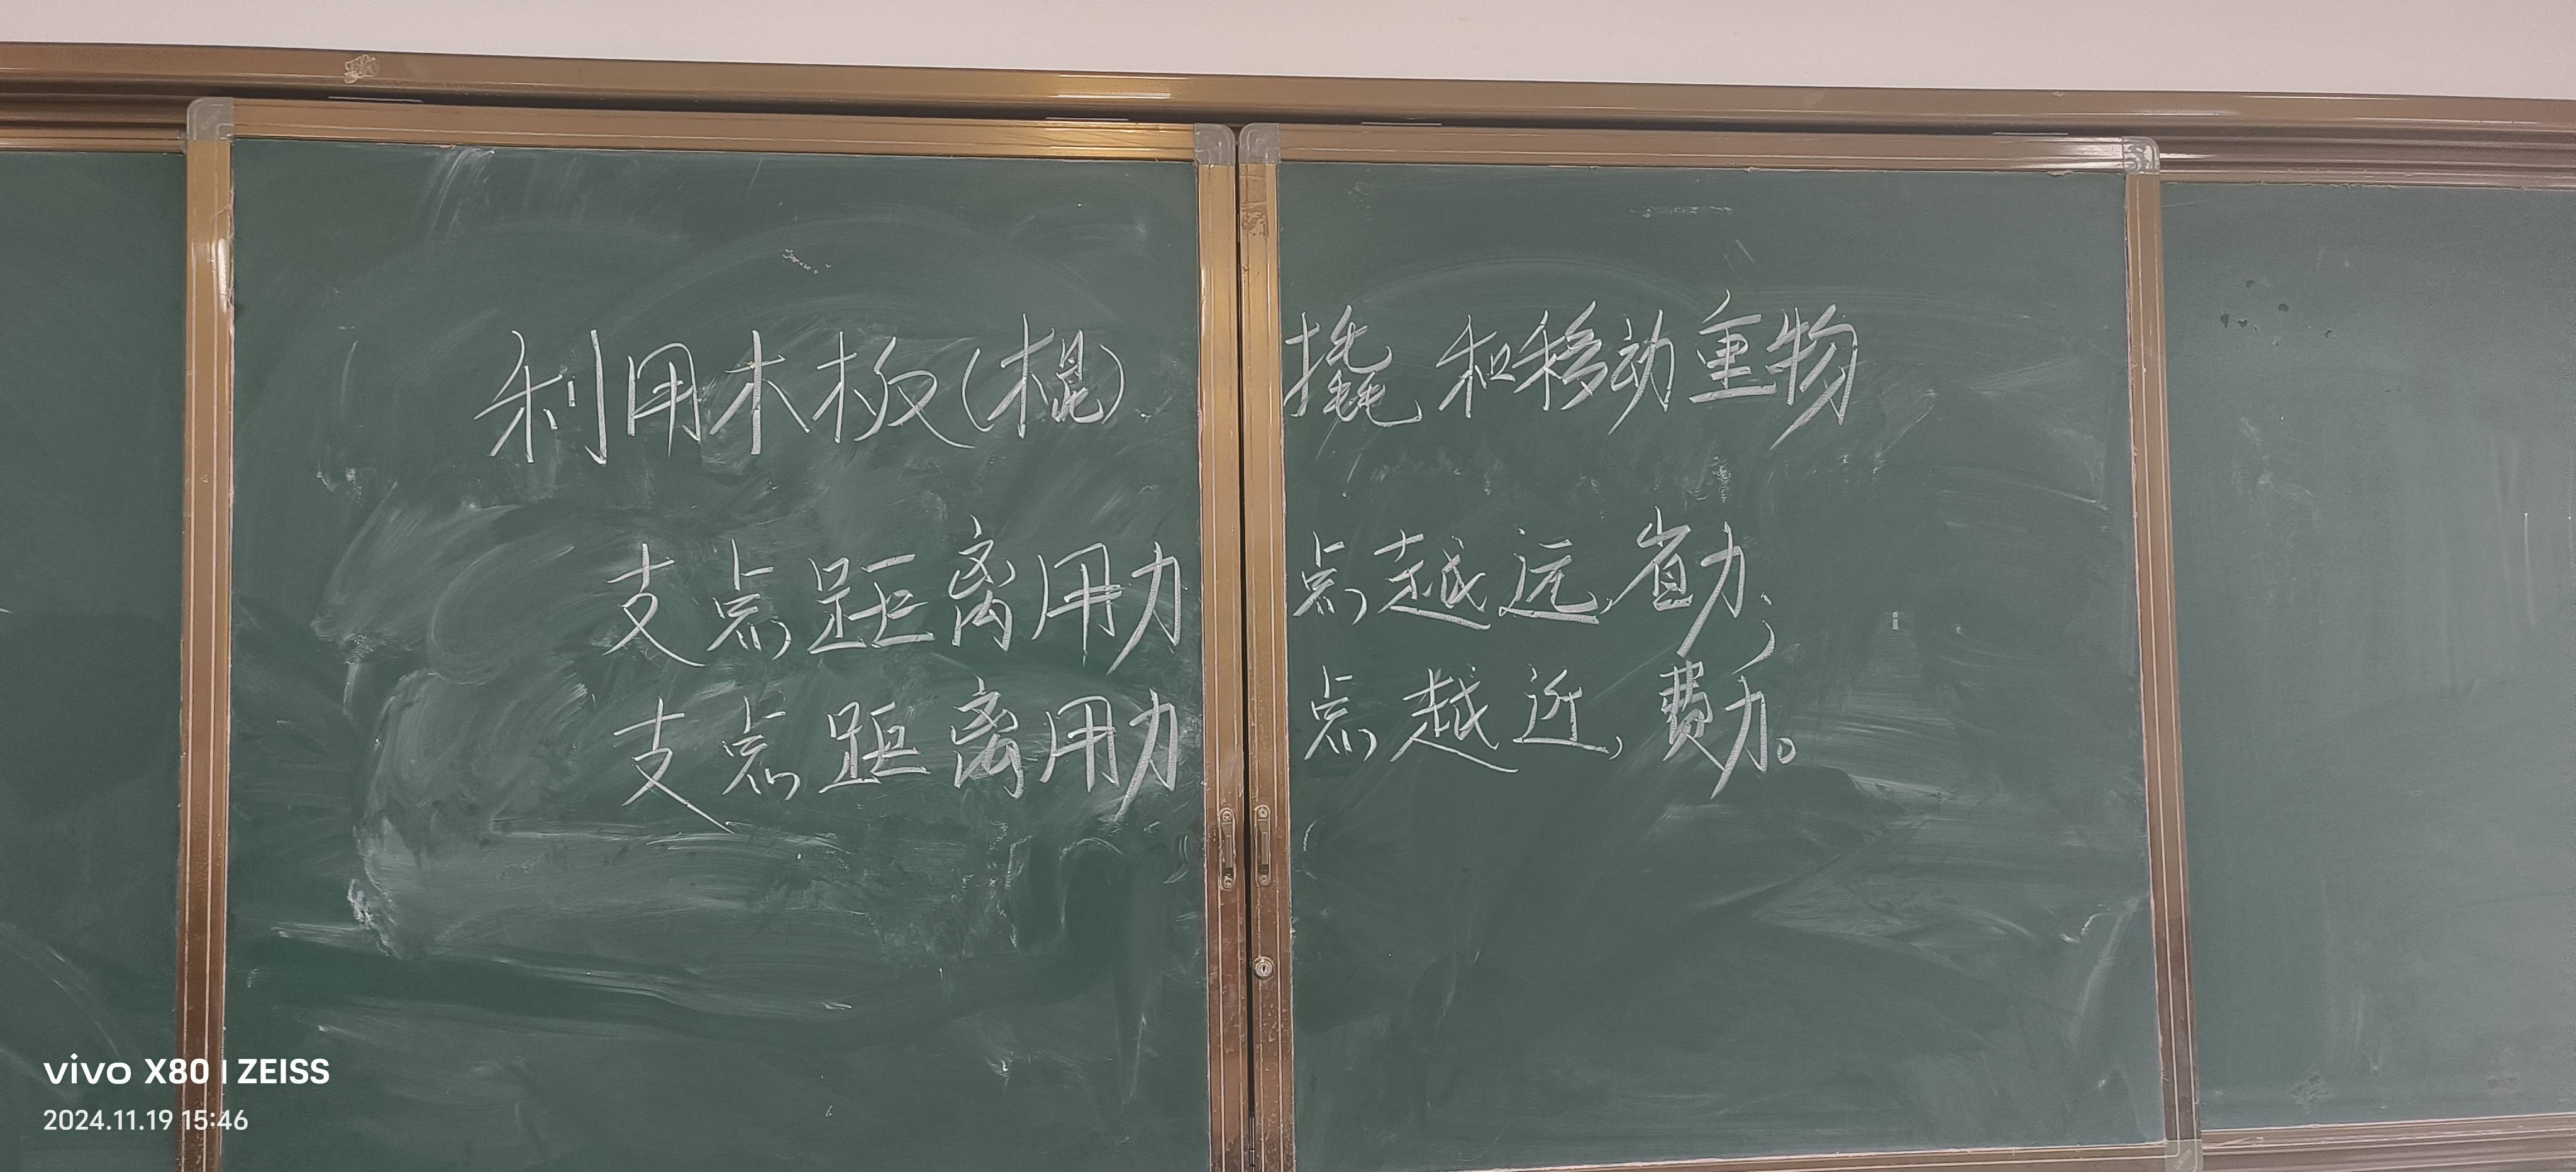 利用木板(棍)撬和移动重物
支点距离用力点越远,省力;
支点距离用力点越近,费力。
vivo X80 | ZEISS
2024.11.19 15:46